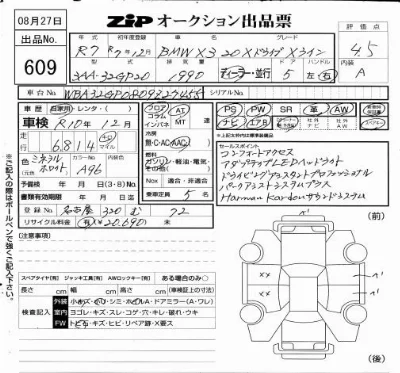 08月27日
ZIP オークション出品票
出品No.
609
年式 初年度登録 車名 グレード
R7 R7年12月 BMW X3 20 Xドライブ Xライン
評価点
4.5
型式 排気量 ドア ハンドル
3AA-32GP20 1990 ディーラー・並行 5 左 右
内装
A
車台No. シリアルNo.
車歴 自家用・レンタ・( )
車検 R10年12月
走行 6814 km マイル
フロア コラム インパネ
AT MT
PS PW SR 革 AW
ナビ TV AB 社外ナビ 社外AW
※上記太枠内は標準装備品
外色 ミネラルホワイト
カラーNo. A96
内装色
冷房
無・C・AC・AAC
燃料
ガソリン・軽油・電気・その他( )
予備検 年 月 日(3・8)No.
書類有効期限 年 月 日
Nox 適合・非適合
乗車定員 5 名
登録No. 名古屋 320 む 72
リサイクル料金 (有) ¥20,690 未
セールスポイント
コンフォートアクセス
アダプティブLEDヘッドライト
ドライビングアシスタントプロフェッショナル
パーキングアシストシステムプラス
Harman Kardonサウンドシステム
(注意事項)
※ご記入の際はボールペンで強くご記入下さい
(前)
スペアタイヤ[有] ジャッキ工具[有] AWロックキー[有] ある場合のみ○
長さ cm 幅 cm 高さ cm (車検証上の寸法)
検査記入
外装 小キズ・ヘコ・シミ・ホイルA・ドアミラー(A・ワレ)
室内 ヨゴレ・キズ・スレ・コゲ・穴・キレ・破れ・ウキ
FW トビ石・キズ・ヒビ・リペア跡・X要ス
××
××
(後)